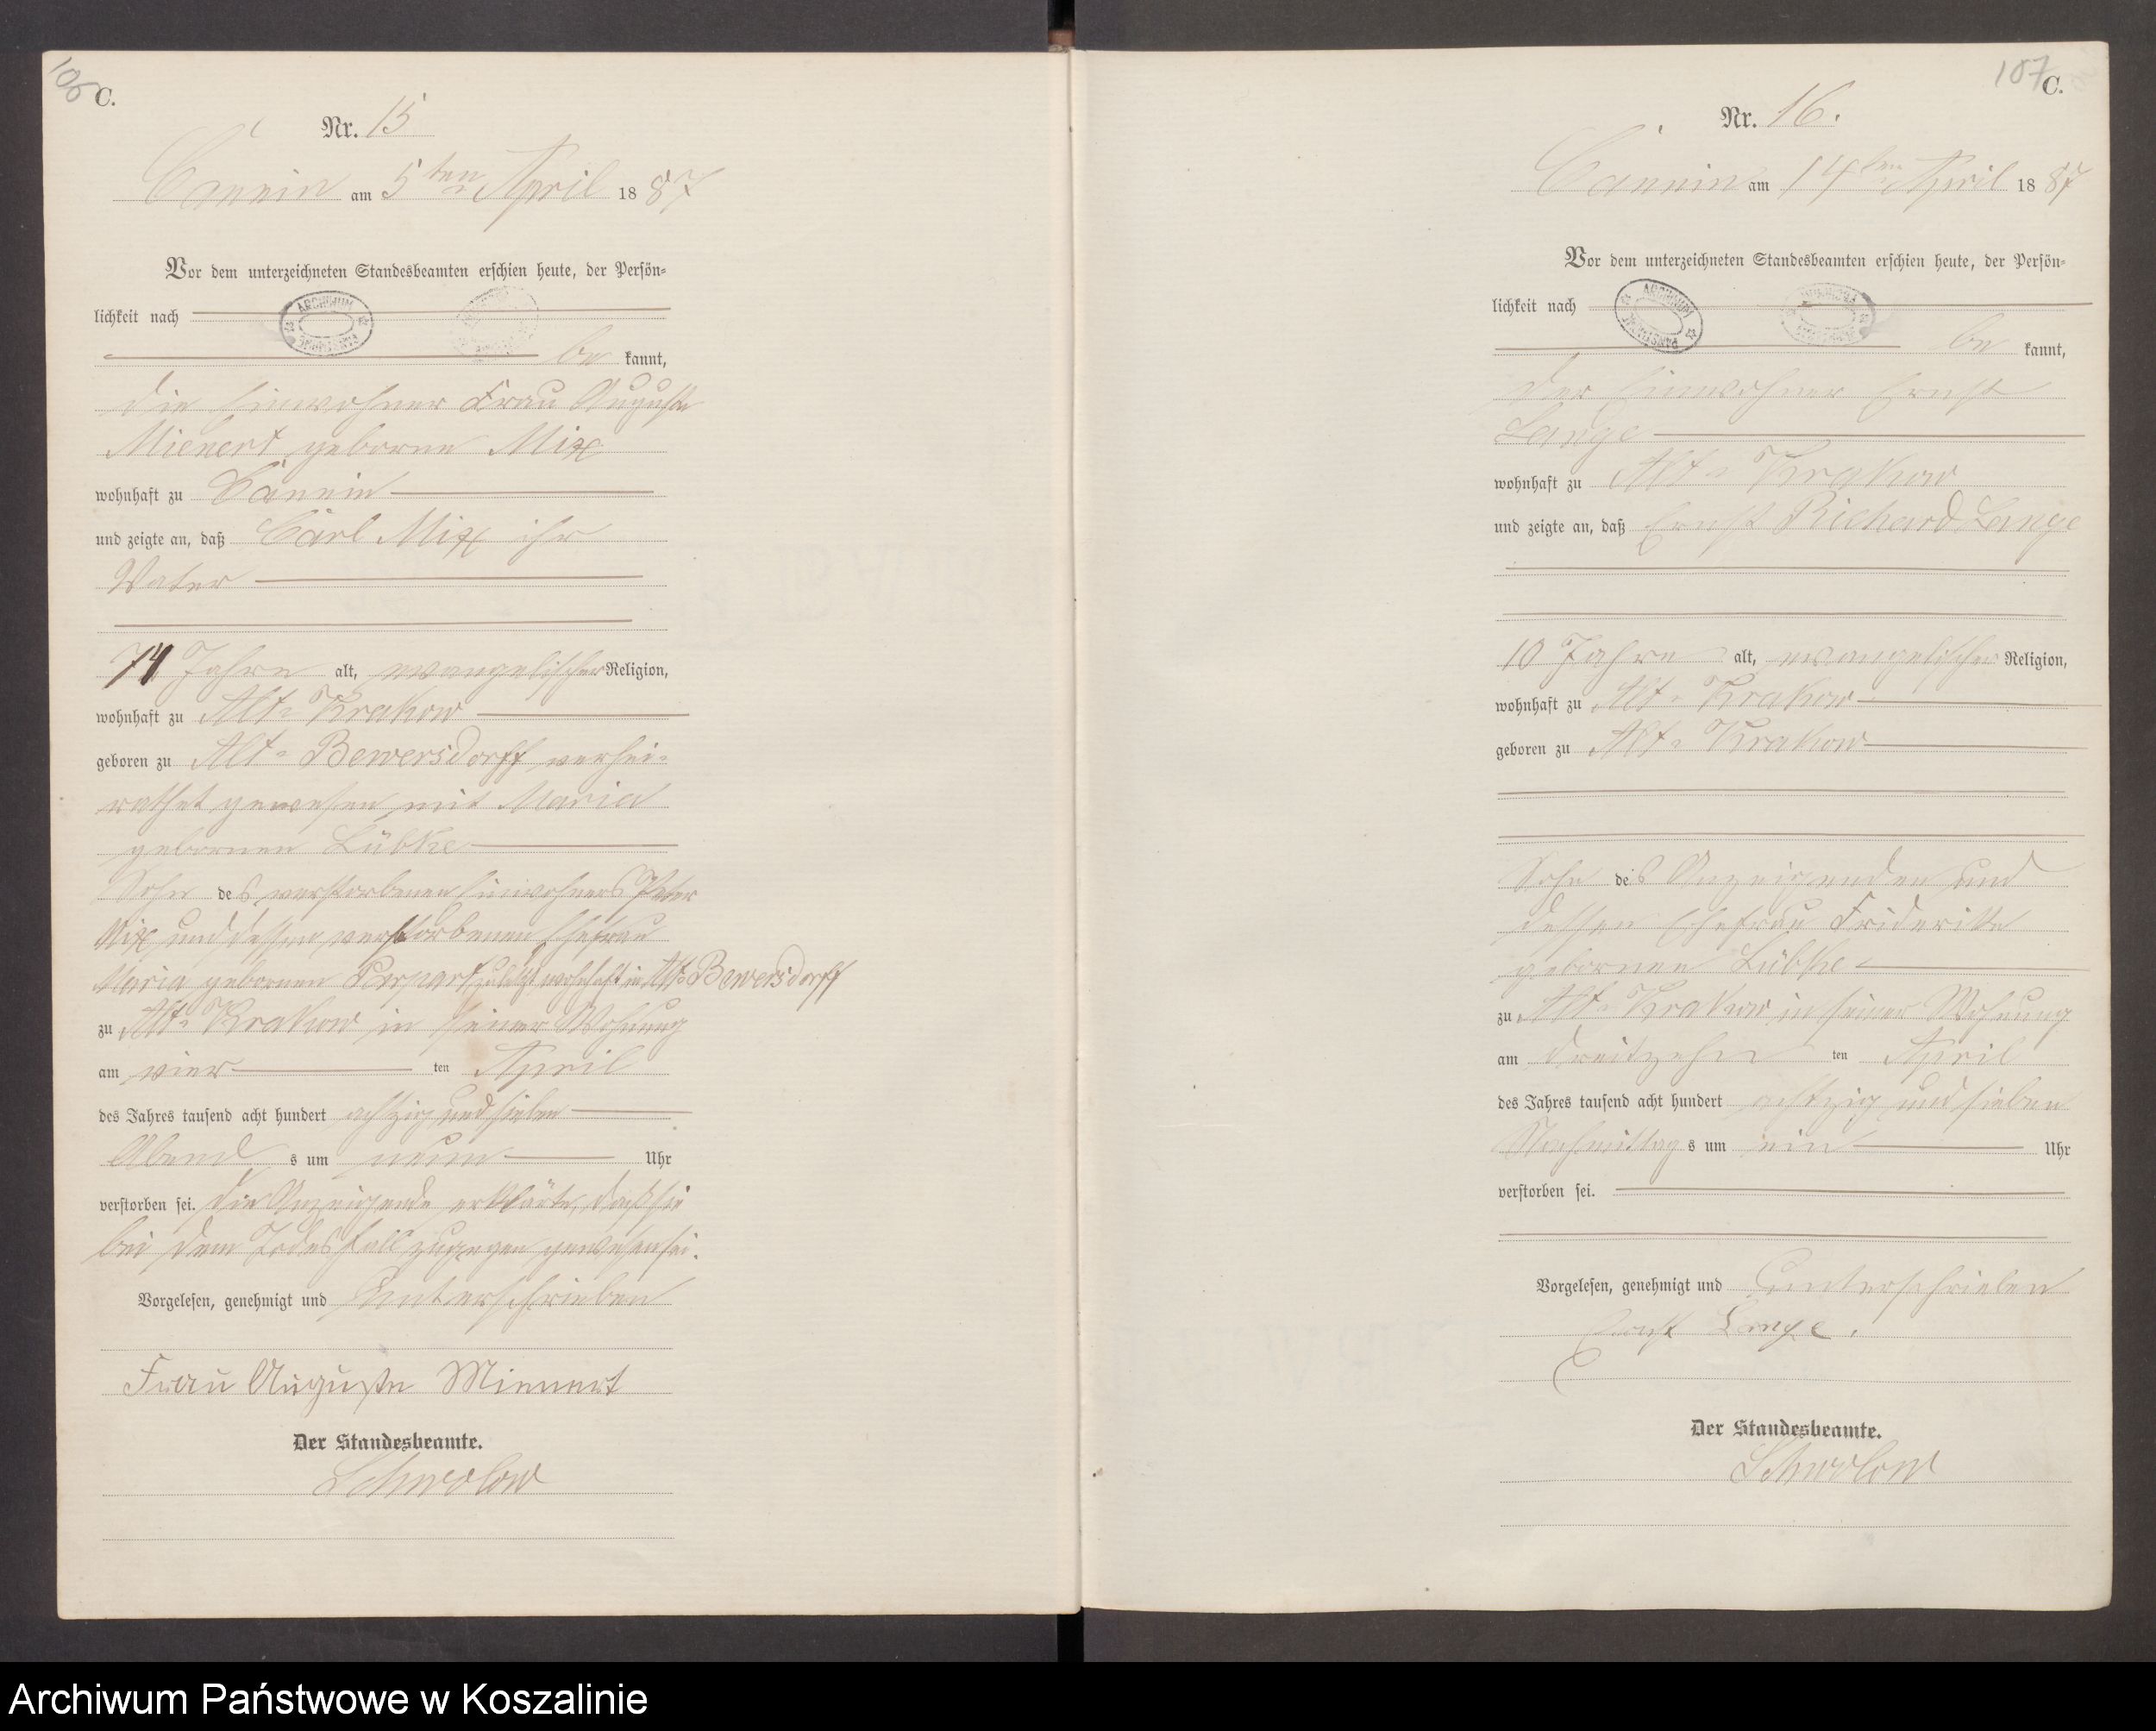 106
C.
Nr. 15
Cannin am 5ten April 1887
Vor dem unterzeichneten Standesbeamten erschien heute, der Persön-
lichkeit nach
be kannt,
die Einwohner Frau Auguste
Mienert geborne Mix
wohnhaft zu Cannin
und zeigte an, daß Carl Mix ihr
Vater
74 Jahre alt, evangelischer Religion,
wohnhaft zu Alt-Krakow
geboren zu Alt-Bewersdorff, verhei-
rathet gewesen mit Maria
gebornen Lübke
Sohn des verstorbenen Einwohners Peter
Mix und dessen verstorbenen Ehefrau
Maria gebornen Perpart zuletzt wohnhaft in Alt-Bewersdorff
zu Alt-Krakow in seiner Wohnung
am vier ten April
des Jahres tausend acht hundert achtzig und sieben
Abend s um neun Uhr
verstorben sei. die Anzeigende erklärte, daß sie
bei dem Todesfall zugegen gewesen sei.
Vorgelesen, genehmigt und Unterschrieben
Frau Auguste Mienert
Der Standesbeamte.
Schwolow
107
C.
Nr. 16.
Cannin am 14ten April 1887
Vor dem unterzeichneten Standesbeamten erschien heute, der Persön-
lichkeit nach
be kannt,
der Einwohner Ernst
Lange
wohnhaft zu Alt-Krakow
und zeigte an, daß Ernst Richard Lange
10 Jahre alt, evangelischer Religion,
wohnhaft zu Alt-Krakow
geboren zu Alt-Krakow
Sohn des Anzeigenden und
dessen Ehefrau Friderikke
gebornen Lübke
zu Alt-Krakow in seiner Wohnung
am dreitzehn ten April
des Jahres tausend acht hundert achtzig und sieben
Nachmittag s um ein Uhr
verstorben sei.
Vorgelesen, genehmigt und Unterschrieben
Ernst Lange.
Der Standesbeamte.
Schwolow
Archiwum Państwowe w Koszalinie